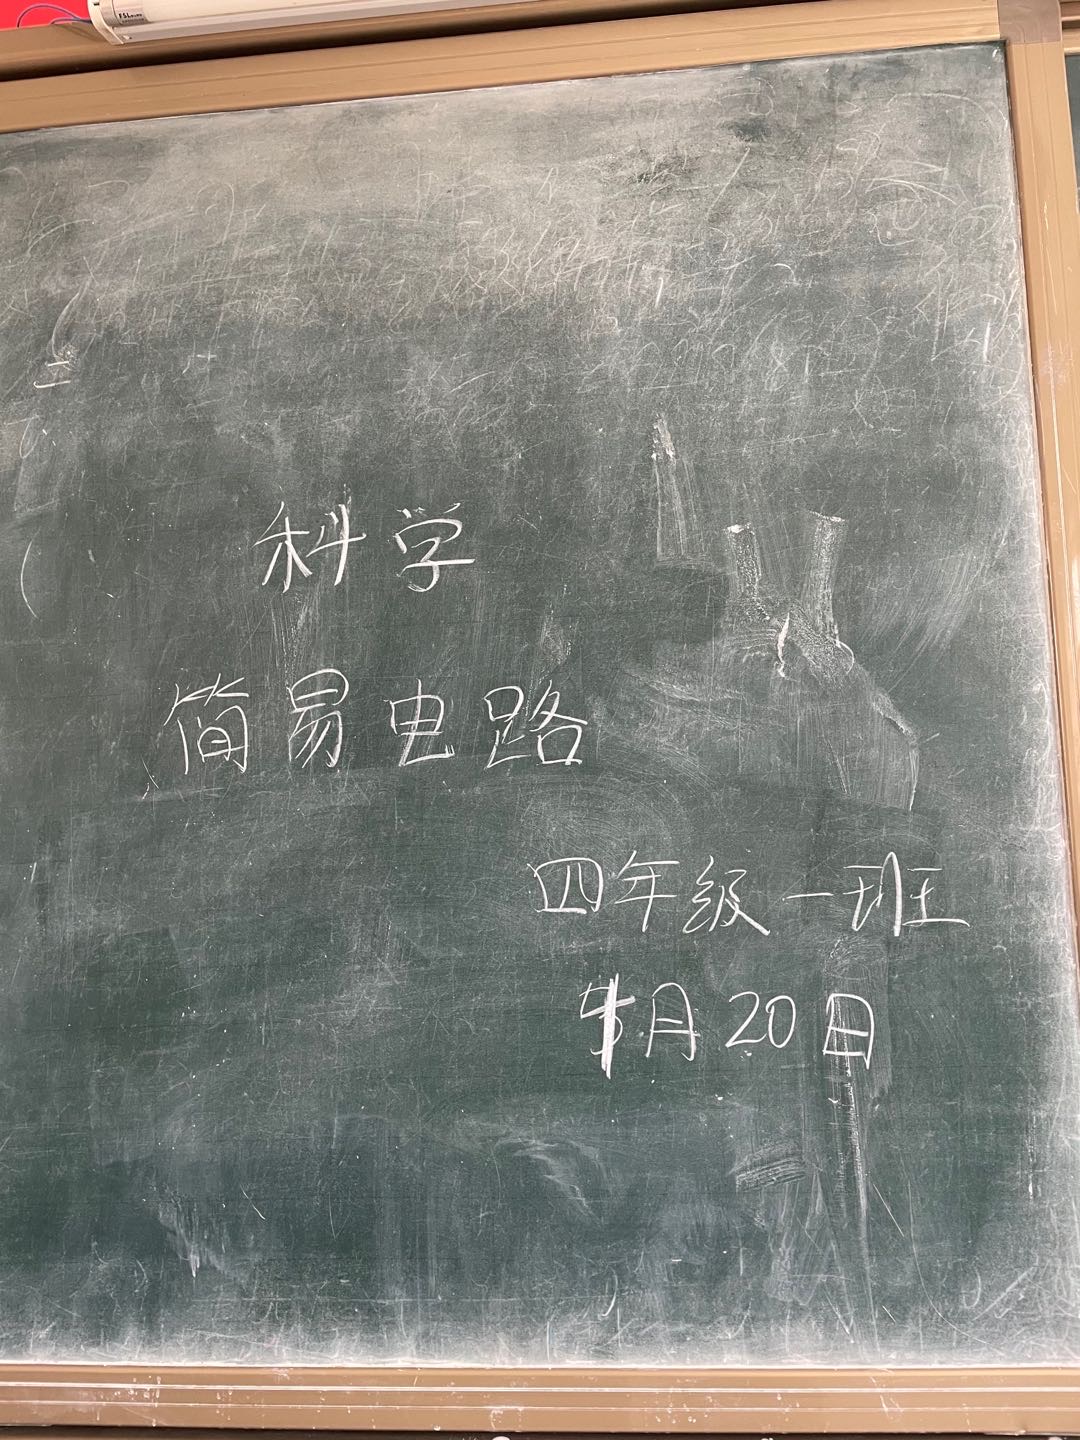 科学
简易电路
四年级一班
月20日